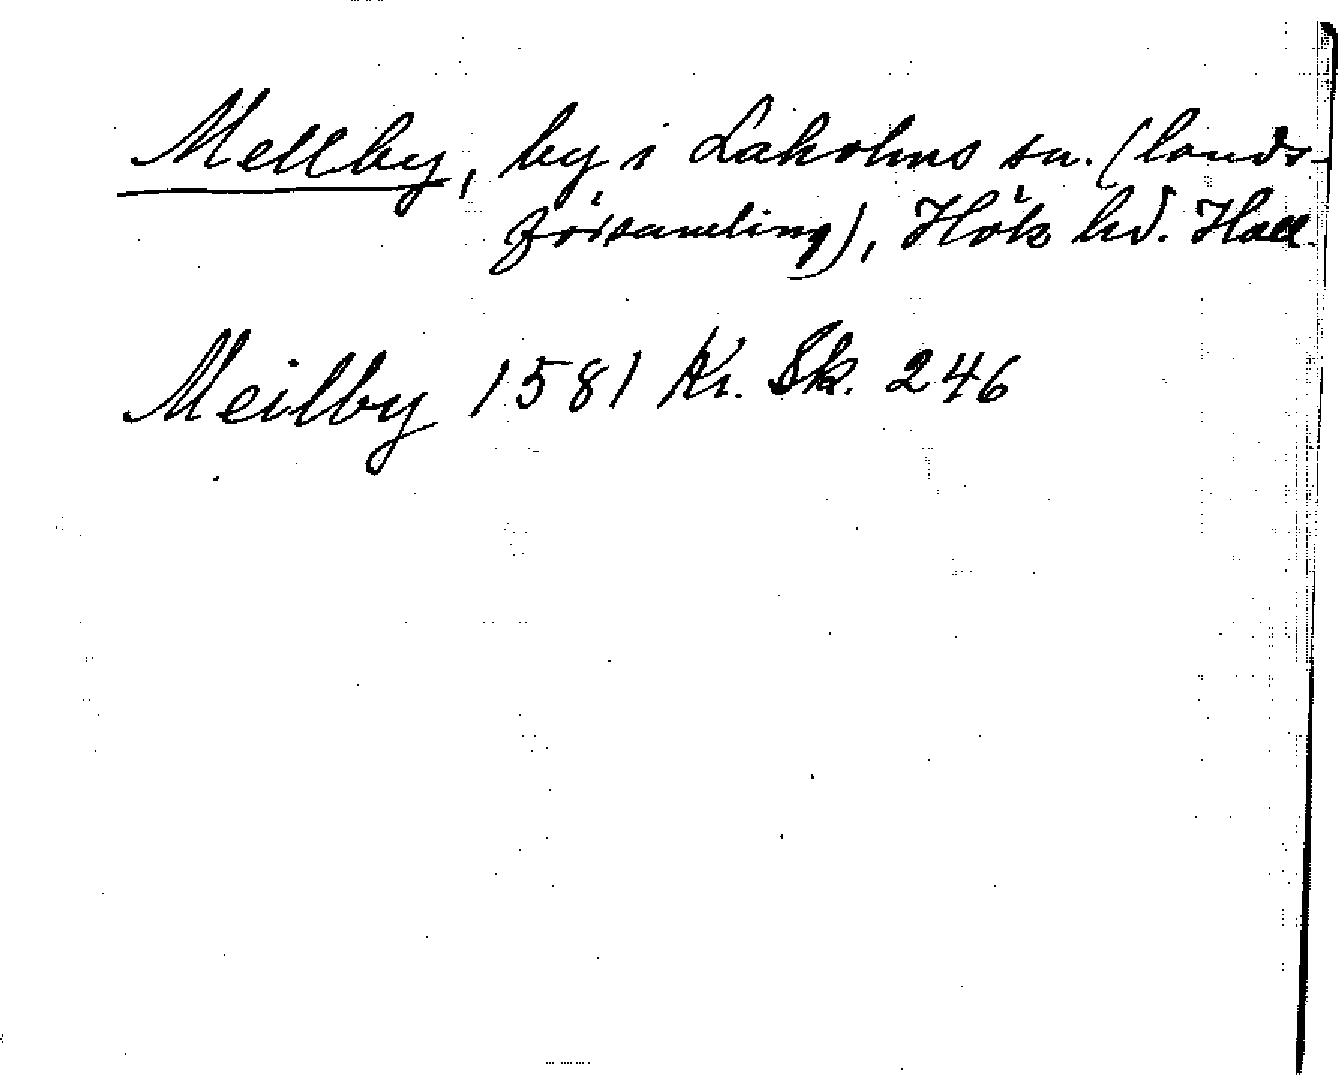 Mellby, by i Laholms sn. (lands-
församling), Höks hd. Hall.
Meilby 1581 Kr. Sk. 246